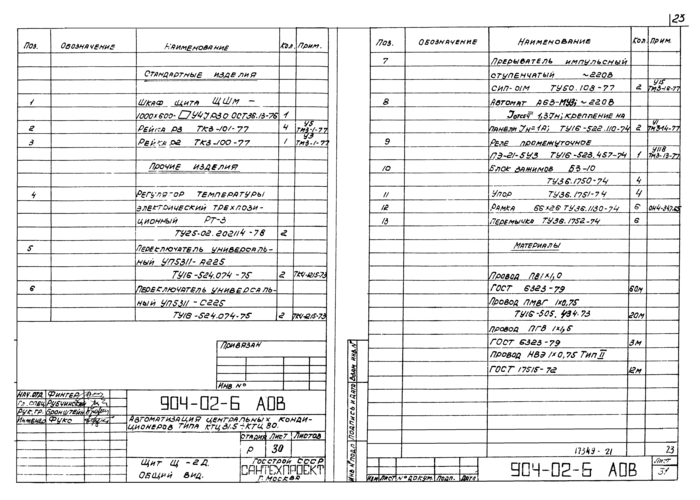 23
Поз. Обозначение Наименование Кол. Прим.
Стандартные изделия
1 Шкаф щита ЩШМ –
1000×600- У4 IP30 ОСТ36.13-76 1
2 Рейка Р3 ТК3-101-77 4 У5 ТМ3-1-77
3 Рейка Р2 ТК3-100-77 1 У3 ТМ3-1-77
Прочие изделия
4 Регулятор температуры
электрический трехпози-
ционный РТ-3
ТУ25-02.202114-78 2
5 Переключатель универсаль-
ный УП5311-А225
ТУ16-524.074-75 2 ТК4-1215-73
6 Переключатель универсаль-
ный УП5311-С225
ТУ18-524.074-75 2 ТК4-1215-73
Привязан
Инв №
Нач. отд. Фингер
Гл. спец. Рубчинский
Рук. гр. Бронштейн
Инженер Фукс
904-02-6 АОВ
Автоматизация центральных конди-
ционеров типа КТЦ 31,5÷КТЦ 80.
Стадия Лист Листов
Р 30
Щит Щ-2Д.
Общий вид.
Госстрой СССР
САНТЕХПРОЕКТ
г. Москва
Поз. Обозначение Наименование Кол. Прим.
7 Прерыватель импульсный
ступенчатый ~220В
СИП-01М ТУ50.103-77 2 У15 ТМ3-16-77
8 Автомат А63-МУ3, ~220В
1,3Iн; крепление на
панели Iн=1А; ТУ16-522.110-74 2 У1 ТМ3-14-77
9 Реле промежуточное
ПЭ-21-5У3 ТУ16-523.457-74 1 У118 ТМ3-13-77
10 Блок зажимов БЗ-10
ТУ36.1750-74 4
11 Упор ТУ36.1751-74 4
12 Рамка 66×26 ТУ36.1130-74 6
13 Перемычка ТУ36.1752-74 6
Материалы
Провод ПВ1×1,0
ГОСТ 6323-79 60м
Провод ПМВГ 1×0,75
ТУ16-505.434.73 20м
Провод ПГВ 1×1,5
ГОСТ 6323-79 3м
Провод НВЭ 1×0,75 Тип II
ГОСТ 17515-72 12м
Инв № подл. Подпись и дата Взам инв. №
17343-21 23
Изм Лист № докум. Подп. Дата
904-02-6 АОВ
Лист
31